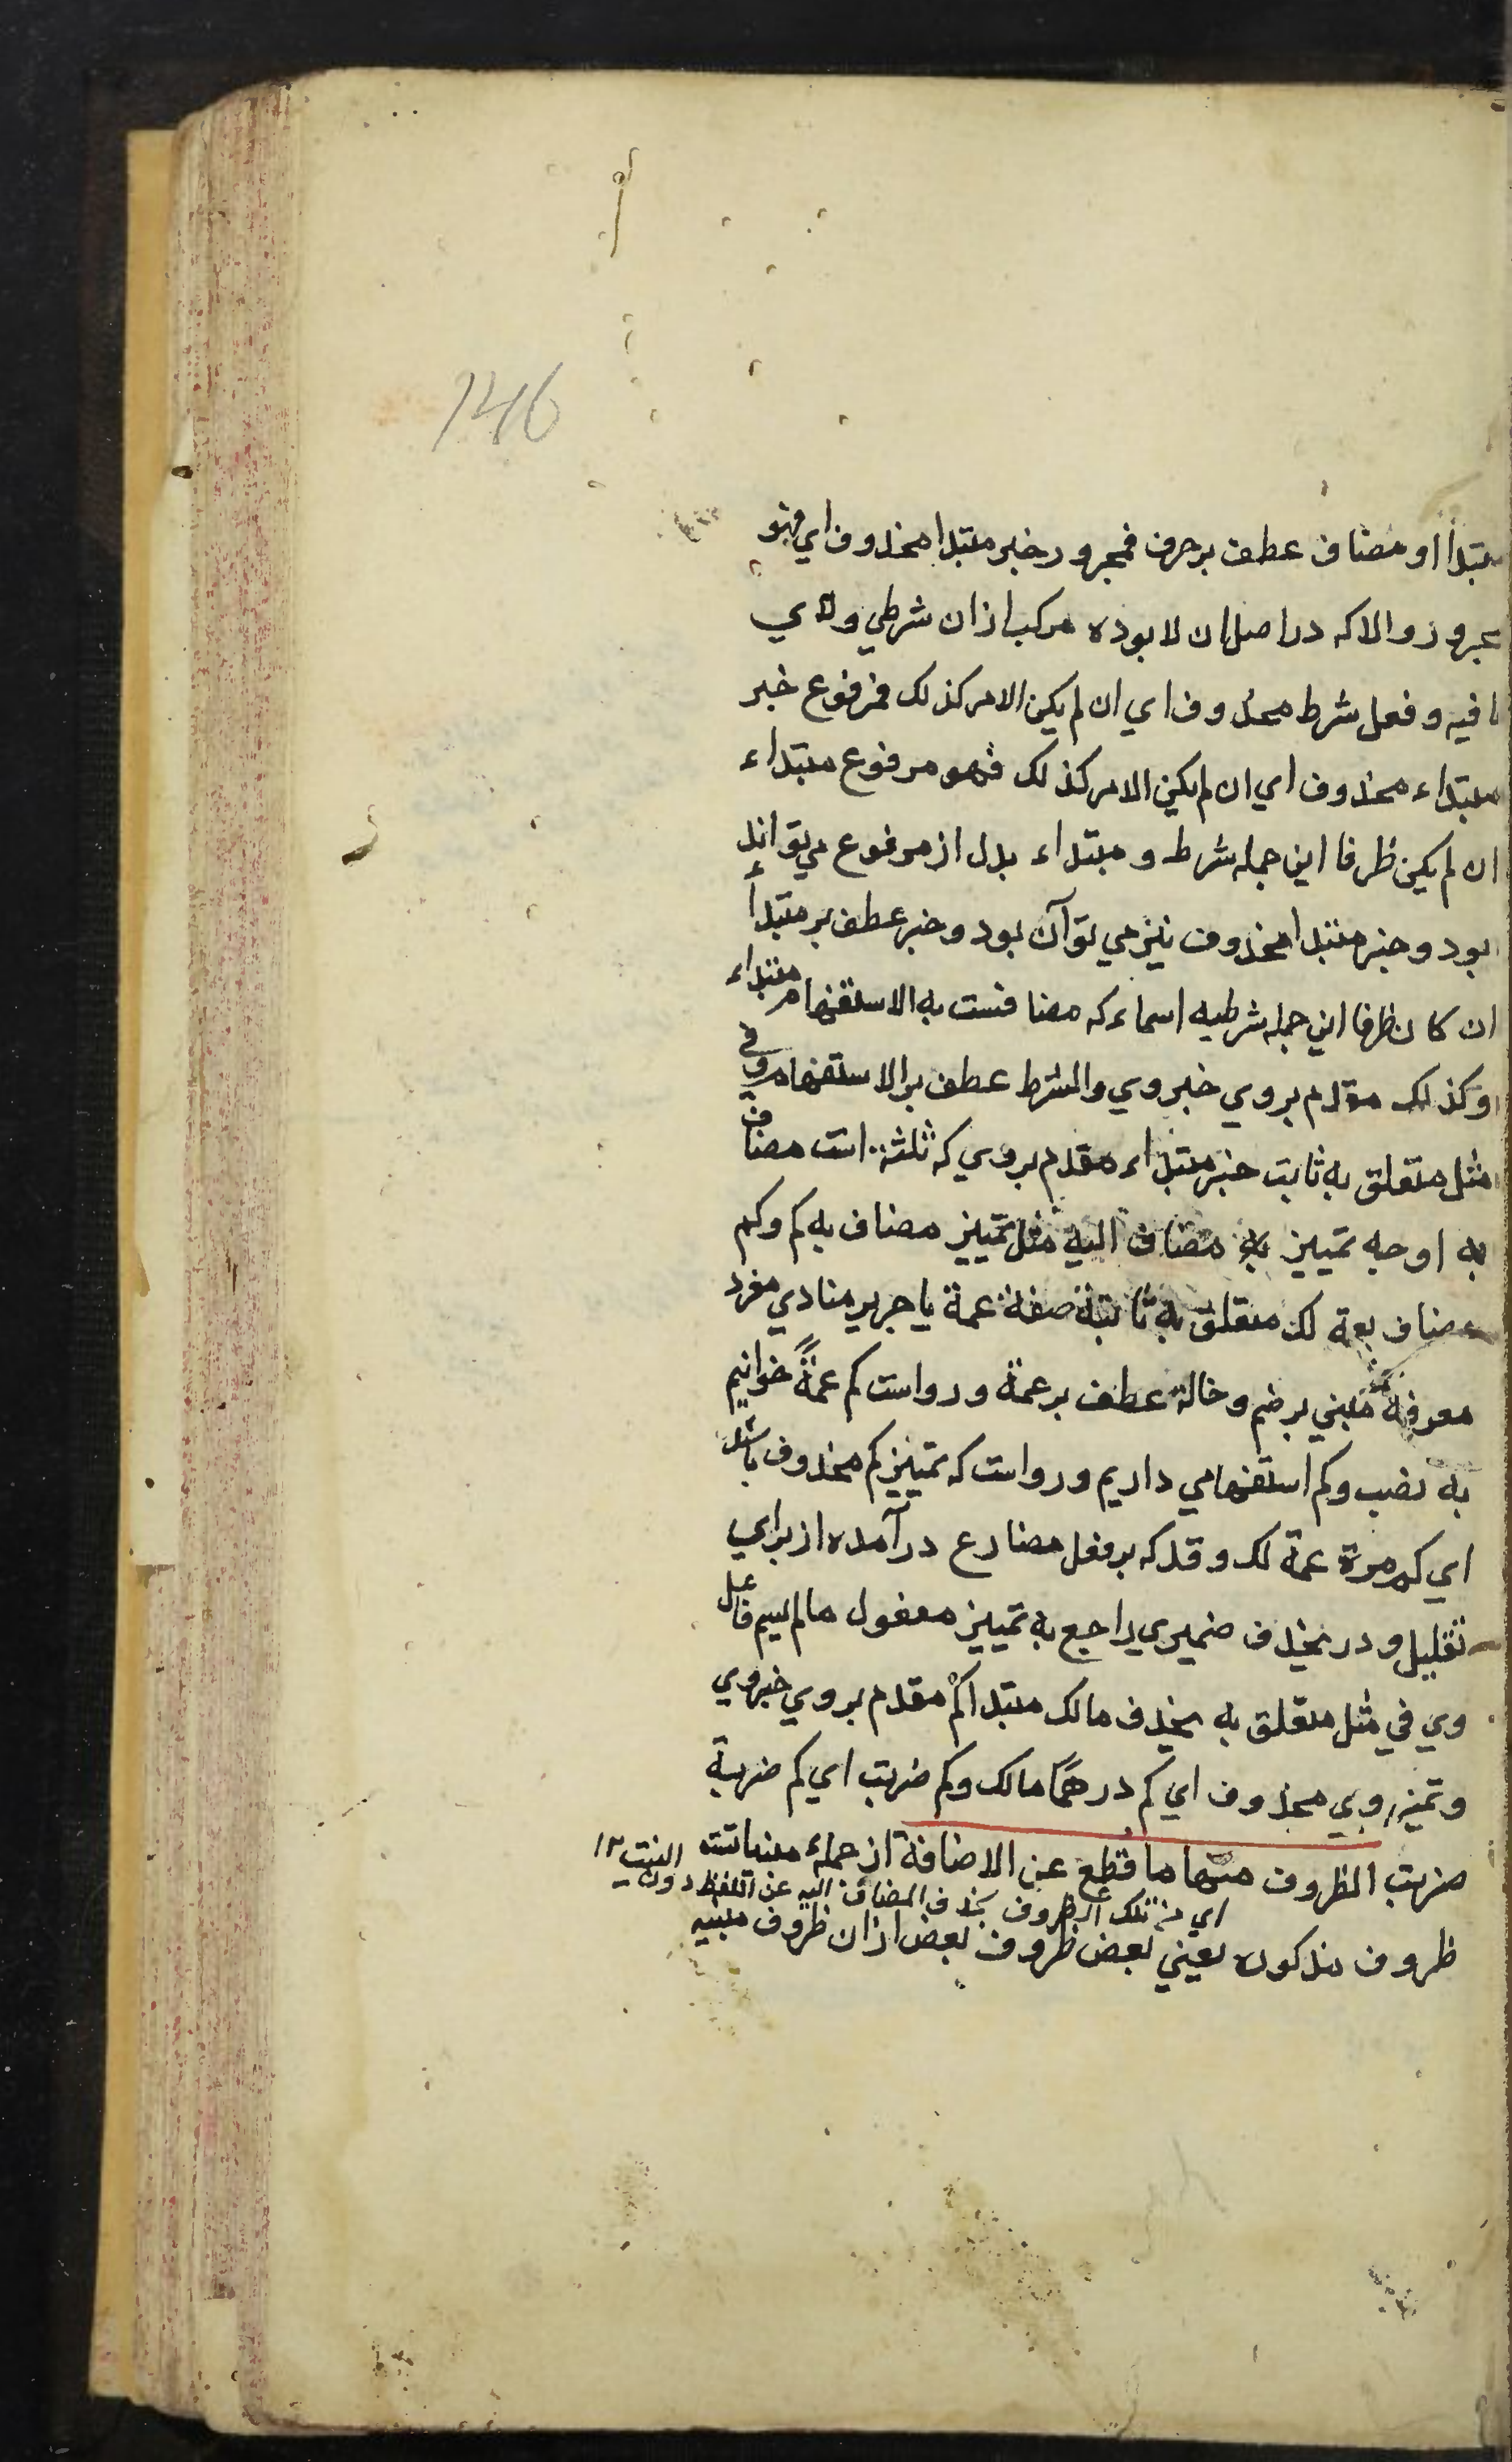 146
مبتدا او مضاف عطف بر حرف فمجرور خبر مبتدا محذوف اي فهو
مجرور والا که در اصل ان لا بوده مرکب از ان شرطي و لاي
نافيه و فعل شرط محذوف اي ان لم يکن الامر کذلک فمرفوع خبر
مبتداء محذوف اي ان لم يکن الامر کذلک فهو مرفوع مبتداء
ان لم يکن ظرفا اين جمله شرط و مبتداء بدل از مرفوع مي تواند
بود و خبر مبتدا محذوف نيز مي توآن بود و خبر عطف بر مبتدأ
ان کان ظرفا اين جمله شرطيه اسماء که مضافست به الاستفهام مبتداء
وکذلک مقدم بروي خبر وي والشرط عطف بر الاستفهام و في
مثل متعلق به ثابت خبر مبتداء مقدم بروي که ثلثة است مضاف
به اوجه تمييز به مضاف اليه مثل تمييز مضاف به کم وکم
مضاف بعمة لک متعلق به ثابتة صفة عمة يا جرير منادي مفرد
معرفه مبني بر ضم وخالة عطف بر عمة و رواست کم عمةً خوانيم
به نصب وکم استفهامي داريم و رواست که تمييز کم محذوف باشد
اي کم مرة عمة لک وقد که بر فعل مضارع درآمده از براي
تقليل و در يحذف ضميري راجع به تمييز مفعول مالم يسم فاعل
وي في مثل متعلق به يحذف مالک مبتدا کم مقدم بروي خبر وي
وتميز وي محذوف اي کم درهمًا مالک وکم ضربت اي کم ضربة
ضربت الظروف منها ما قُطع عن الاضافة از جمله مبنيات
اي من تلک الظروف بحذف المضاف اليه عن اللفظ دون النيت ١٢
ظروف مذکوره يعني بعض ظروف بعض از ان ظروف مبنيه